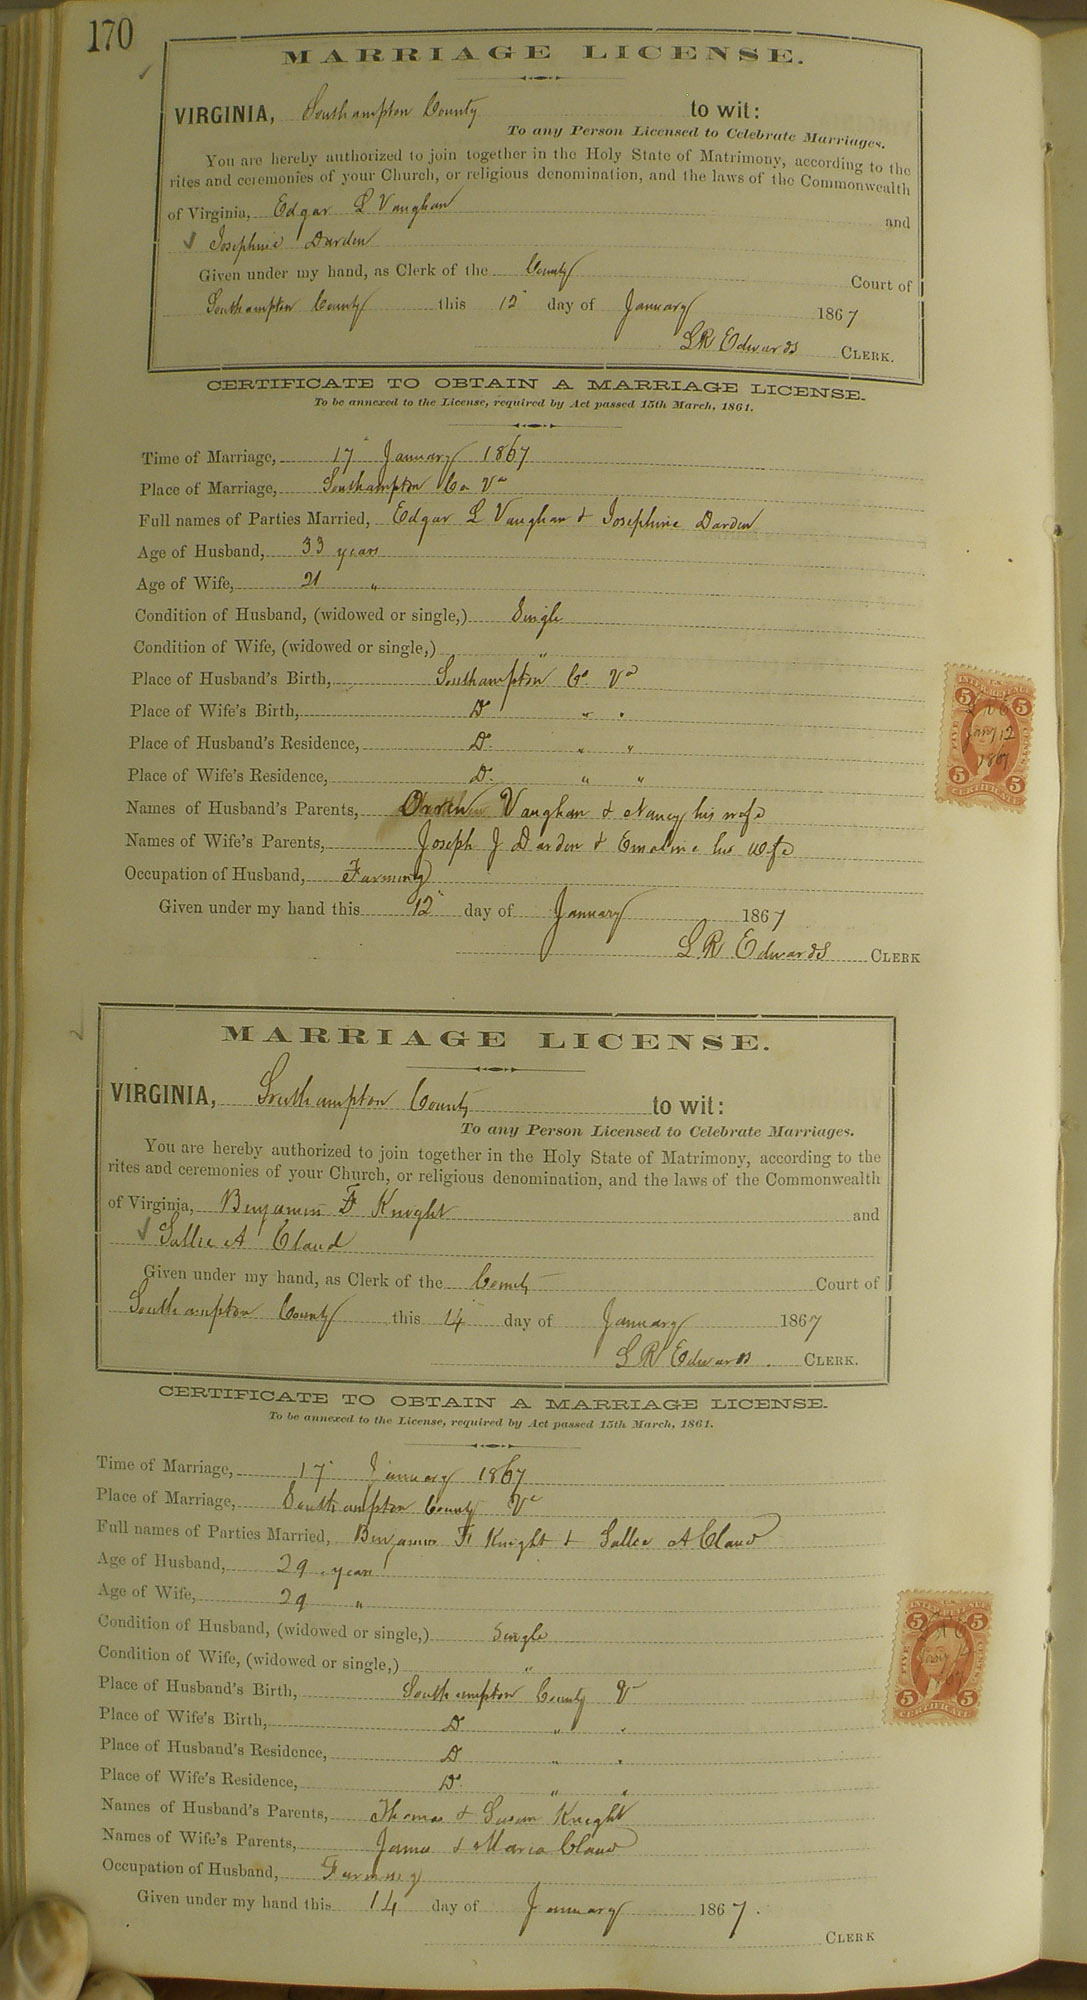 170
MARRIAGE LICENSE.
VIRGINIA, Southampton County to wit:
To any Person Licensed to Celebrate Marriages.
You are hereby authorized to join together in the Holy State of Matrimony, according to the
rites and ceremonies of your Church, or religious denomination, and the laws of the Commonwealth
of Virginia, Edgar L Vaughan and
Josephine Darden
Given under my hand, as Clerk of the County Court of
Southampton County this 12 day of January 1867
LR Edwards CLERK.
CERTIFICATE TO OBTAIN A MARRIAGE LICENSE.
To be annexed to the License, required by Act passed 15th March, 1861.
Time of Marriage, 17 January 1867
Place of Marriage, Southampton Co Va
Full names of Parties Married, Edgar L Vaughan & Josephine Darden
Age of Husband, 33 years
Age of Wife, 21 "
Condition of Husband, (widowed or single,) Single
Condition of Wife, (widowed or single,) "
Place of Husband's Birth, Southampton Co Va
Place of Wife's Birth, Do " "
Place of Husband's Residence, Do " "
Place of Wife's Residence, Do " "
Names of Husband's Parents, Vaughan & Nancy his wife
Names of Wife's Parents, Joseph J Darden & Emaline his wife
Occupation of Husband, Farming
Given under my hand this 12 day of January 1867
LR Edwards CLERK
5 5
FIVE CENTS
Jany 12
1867
5 5
CERTIFICATE
MARRIAGE LICENSE.
VIRGINIA, Southampton County to wit:
To any Person Licensed to Celebrate Marriages.
You are hereby authorized to join together in the Holy State of Matrimony, according to the
rites and ceremonies of your Church, or religious denomination, and the laws of the Commonwealth
of Virginia, Benjamin F Knight and
Sallie A Claud
Given under my hand, as Clerk of the County Court of
Southampton County this 14 day of January 1867
LR Edwards CLERK.
CERTIFICATE TO OBTAIN A MARRIAGE LICENSE.
To be annexed to the License, required by Act passed 15th March, 1861.
Time of Marriage, 17 January 1867
Place of Marriage, Southampton County Va
Full names of Parties Married, Benjamin F Knight & Sallie A Claud
Age of Husband, 29 years
Age of Wife, 29 "
Condition of Husband, (widowed or single,) Single
Condition of Wife, (widowed or single,) "
Place of Husband's Birth, Southampton County V
Place of Wife's Birth, Do " "
Place of Husband's Residence, Do " "
Place of Wife's Residence, Do " "
Names of Husband's Parents, Thomas & Susan Knight
Names of Wife's Parents, James & Maria Claud
Occupation of Husband, Farming
Given under my hand this 14 day of January 1867.
CLERK
5 5
FIVE CENTS
5 5
CERTIFICATE